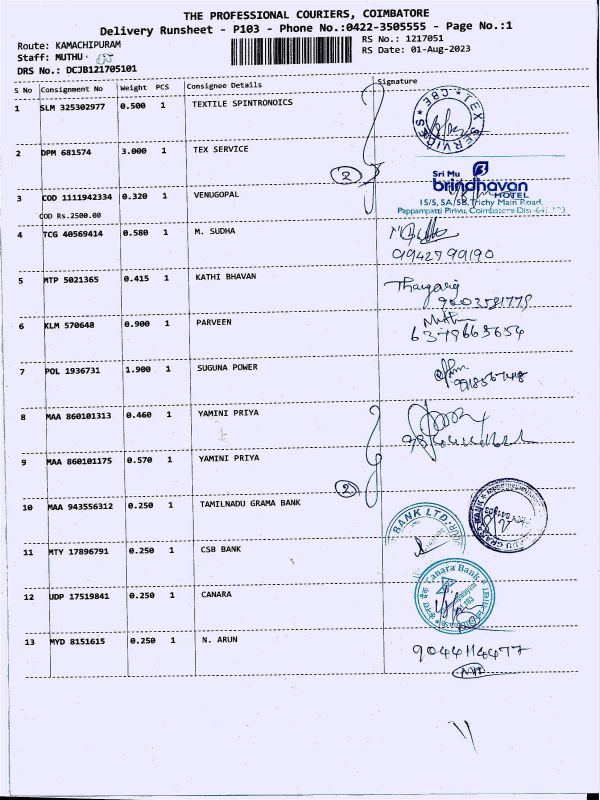 THE PROFESSIONAL COURIERS, COIMBATORE
Delivery Runsheet - P103 - Phone No.:0422-3505555 - Page No.:1
Route: KAMACHIPURAM
RS No.: 1217051
Staff: MUTHU
RS Date: 01-Aug-2023
DRS No.: DCJB121705101
S No Consignment No Weight PCS Consignee Details Signature
1 SLM 325302977 0.500 1 TEXTILE SPINTRONOICS
TEX SERVICES * CBE *
2 DPM 681574 3.000 1 TEX SERVICE
2
Sri Mu
brindhavan
HOTEL
3 COD 1111942334 0.320 1 VENUGOPAL
15/5, 5A/5B, Trichy Main Road,
COD Rs.2500.00
Pappampatti Pirivu, Coimbatore Dist-641 103
4 TCG 40569414 0.580 1 M. SUDHA
9942799190
5 MTP 5021365 0.415 1 KATHI BHAVAN
6 KLM 570648 0.900 1 PARVEEN
Muthu
6379665654
7 POL 1936731 1.900 1 SUGUNA POWER
8 MAA 860101313 0.460 1 YAMINI PRIYA
9 MAA 860101175 0.570 1 YAMINI PRIYA
2
10 MAA 943556312 0.250 1 TAMILNADU GRAMA BANK
BANK LTD.
11 MTY 17896791 0.250 1 CSB BANK
Canara Bank
12 UDP 17519841 0.250 1 CANARA
13 MYD 8151615 0.250 1 N. ARUN
9044114477